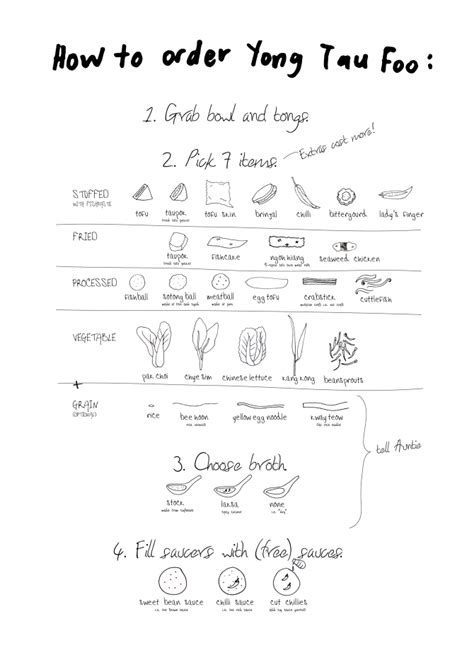 How to order Yong Tau Foo:
1. Grab bowl and tongs.
2. Pick 7 items.
Extras cost more!
STUFFED
WITH FISHPASTE
tofu taupok tofu skin brinjal chilli bittergourd lady's finger
FRIED
taupok fishcake ngoh hiang seaweed chicken
PROCESSED
fishball sotong ball meatball egg tofu crabstick cuttlefish
VEGETABLE
pak choi chye sim chinese lettuce kang kong beansprouts
+
GRAIN
(OPTIONAL)
rice bee hoon yellow egg noodle kway teow
rice vermicelli flat rice noodle
tell Auntie
3. Choose broth.
stock laksa none
made from soybeans spicy coconut i.e. "dry"
4. Fill saucers with (free) sauces.
sweet bean sauce chilli sauce cut chillies
i.e. the brown sauce i.e. the red sauce add soy sauce yourself